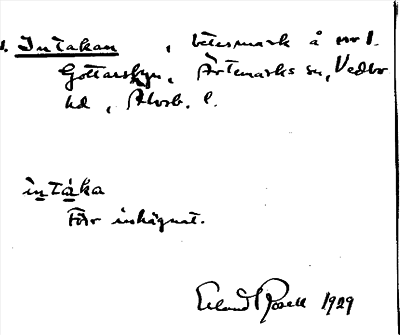 1. Intakan, betesmark å nr 1.
Gottarsbyn, Årtemarks sn, Vedbo
hd, Älvsb. l.
intåka
Förr inhägnat.
Erland Rosell 1929